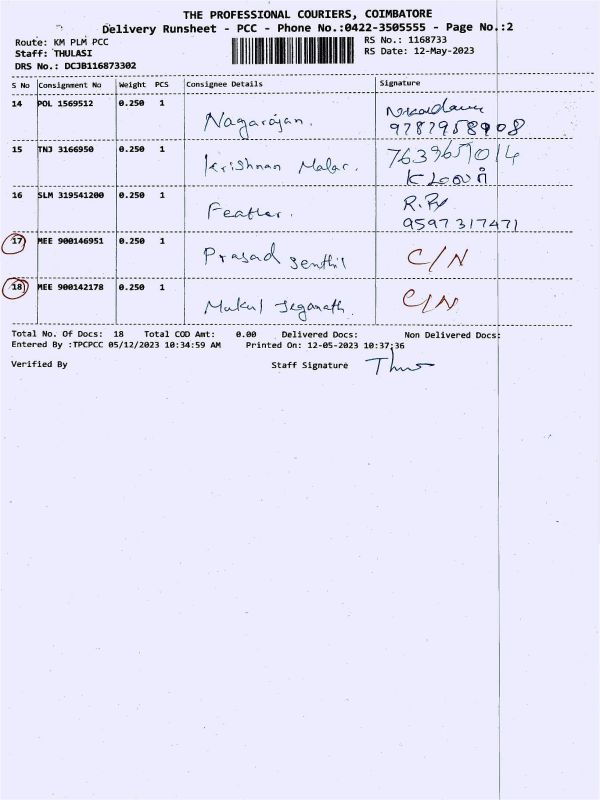 THE PROFESSIONAL COURIERS, COIMBATORE
Delivery Runsheet - PCC - Phone No.:0422-3505555 - Page No.:2
Route: KM PLM PCC
Staff: THULASI
DRS No.: DCJB116873302
RS No.: 1168733
RS Date: 12-May-2023
S No Consignment No Weight PCS Consignee Details Signature
14 POL 1569512 0.250 1 Nagarajan.
9787958908
15 TNJ 3166950 0.250 1 Krishnan Malar. 7639657014
16 SLM 319541200 0.250 1 Feather. R.
9597317471
17 MEE 900146951 0.250 1 Prasad Senthil C/N
18 MEE 900142178 0.250 1 Mukul Jeganath. C/N
Total No. Of Docs: 18 Total COD Amt: 0.00 Delivered Docs: Non Delivered Docs:
Entered By :TPCPCC 05/12/2023 10:34:59 AM Printed On: 12-05-2023 10:37:36
Verified By Staff Signature